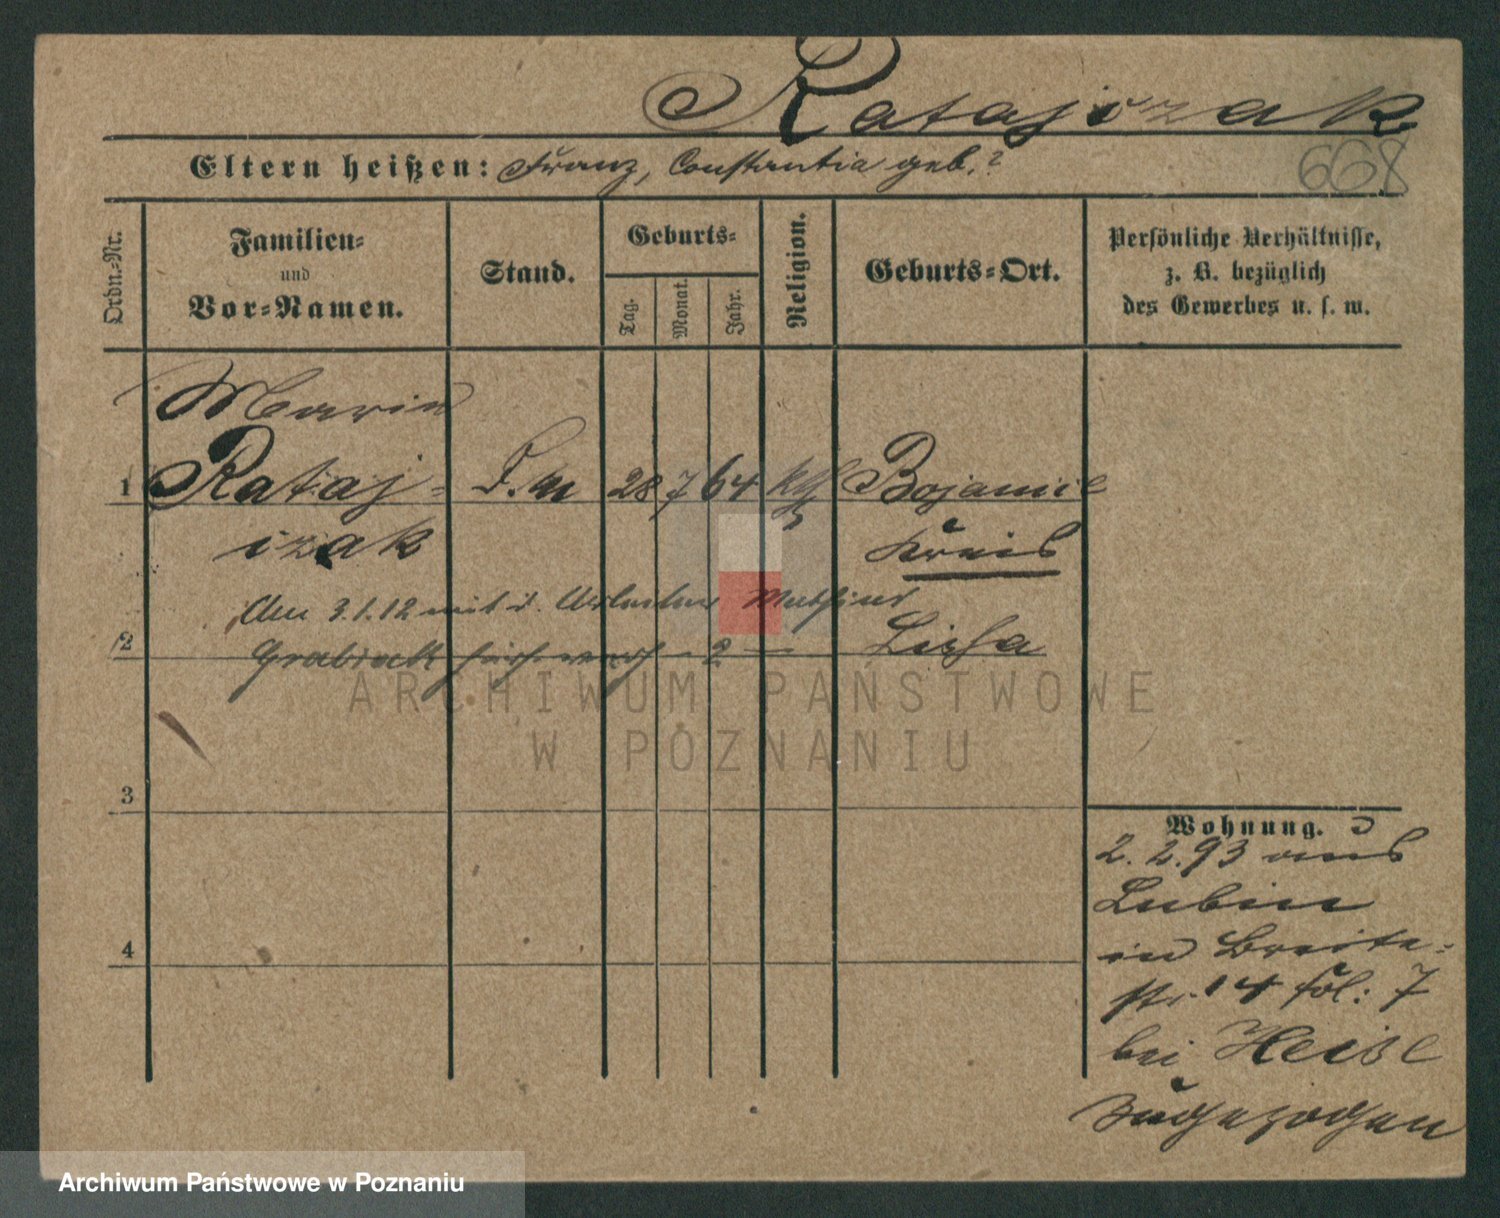 Ratajczak
Eltern heißen: Franz, Constantia geb. ?
668
Ordn.-Nr.
Familien-
und
Vor-Namen.
Stand.
Geburts-
Tag.
Monat.
Jahr.
Religion.
Geburts-Ort.
Persönliche Verhältnisse,
z. B. bezüglich
des Gewerbes u. s. w.
Marie
1 Rataj- D.M 28 7 64 kth Bojanic
czak Kreis
Am 3.1.12 mit d. Arbeiter
2 Lissa
ARCHIWUM PAŃSTWOWE
W POZNANIU
3
Wohnung.
2. 2. 93 aus
Lubin
4
in Breite-
str. 14 fol: 7
bei
zugezogen
Archiwum Państwowe w Poznaniu